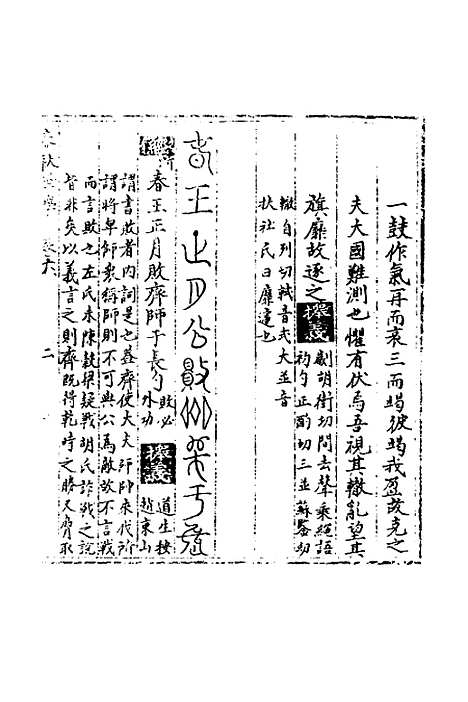 一鼓作氣再而衰三而竭彼竭我盈故克之
夫大國難測也懼有伏焉吾視其轍亂望其
旗靡故逐之
劌胡衛切間去聲乘繩語
杓勺正酌切三並蘇暫切
轍自列切軾音式大並音
扶杜氏曰靡達也
春王正月公敗
春王正月敗齊師于長勺
敗必
水功
道生按
越東山
謂書敗者內詞是也蓋齊使大夫師師來伐所
謂將卑師衆稱師則不可與公為敵故不言戰
而言敗也左氏未陳穀梁疑戰胡氏詐戰之説
皆非矣以義言之則齊既得乾時之勝又脅取
二